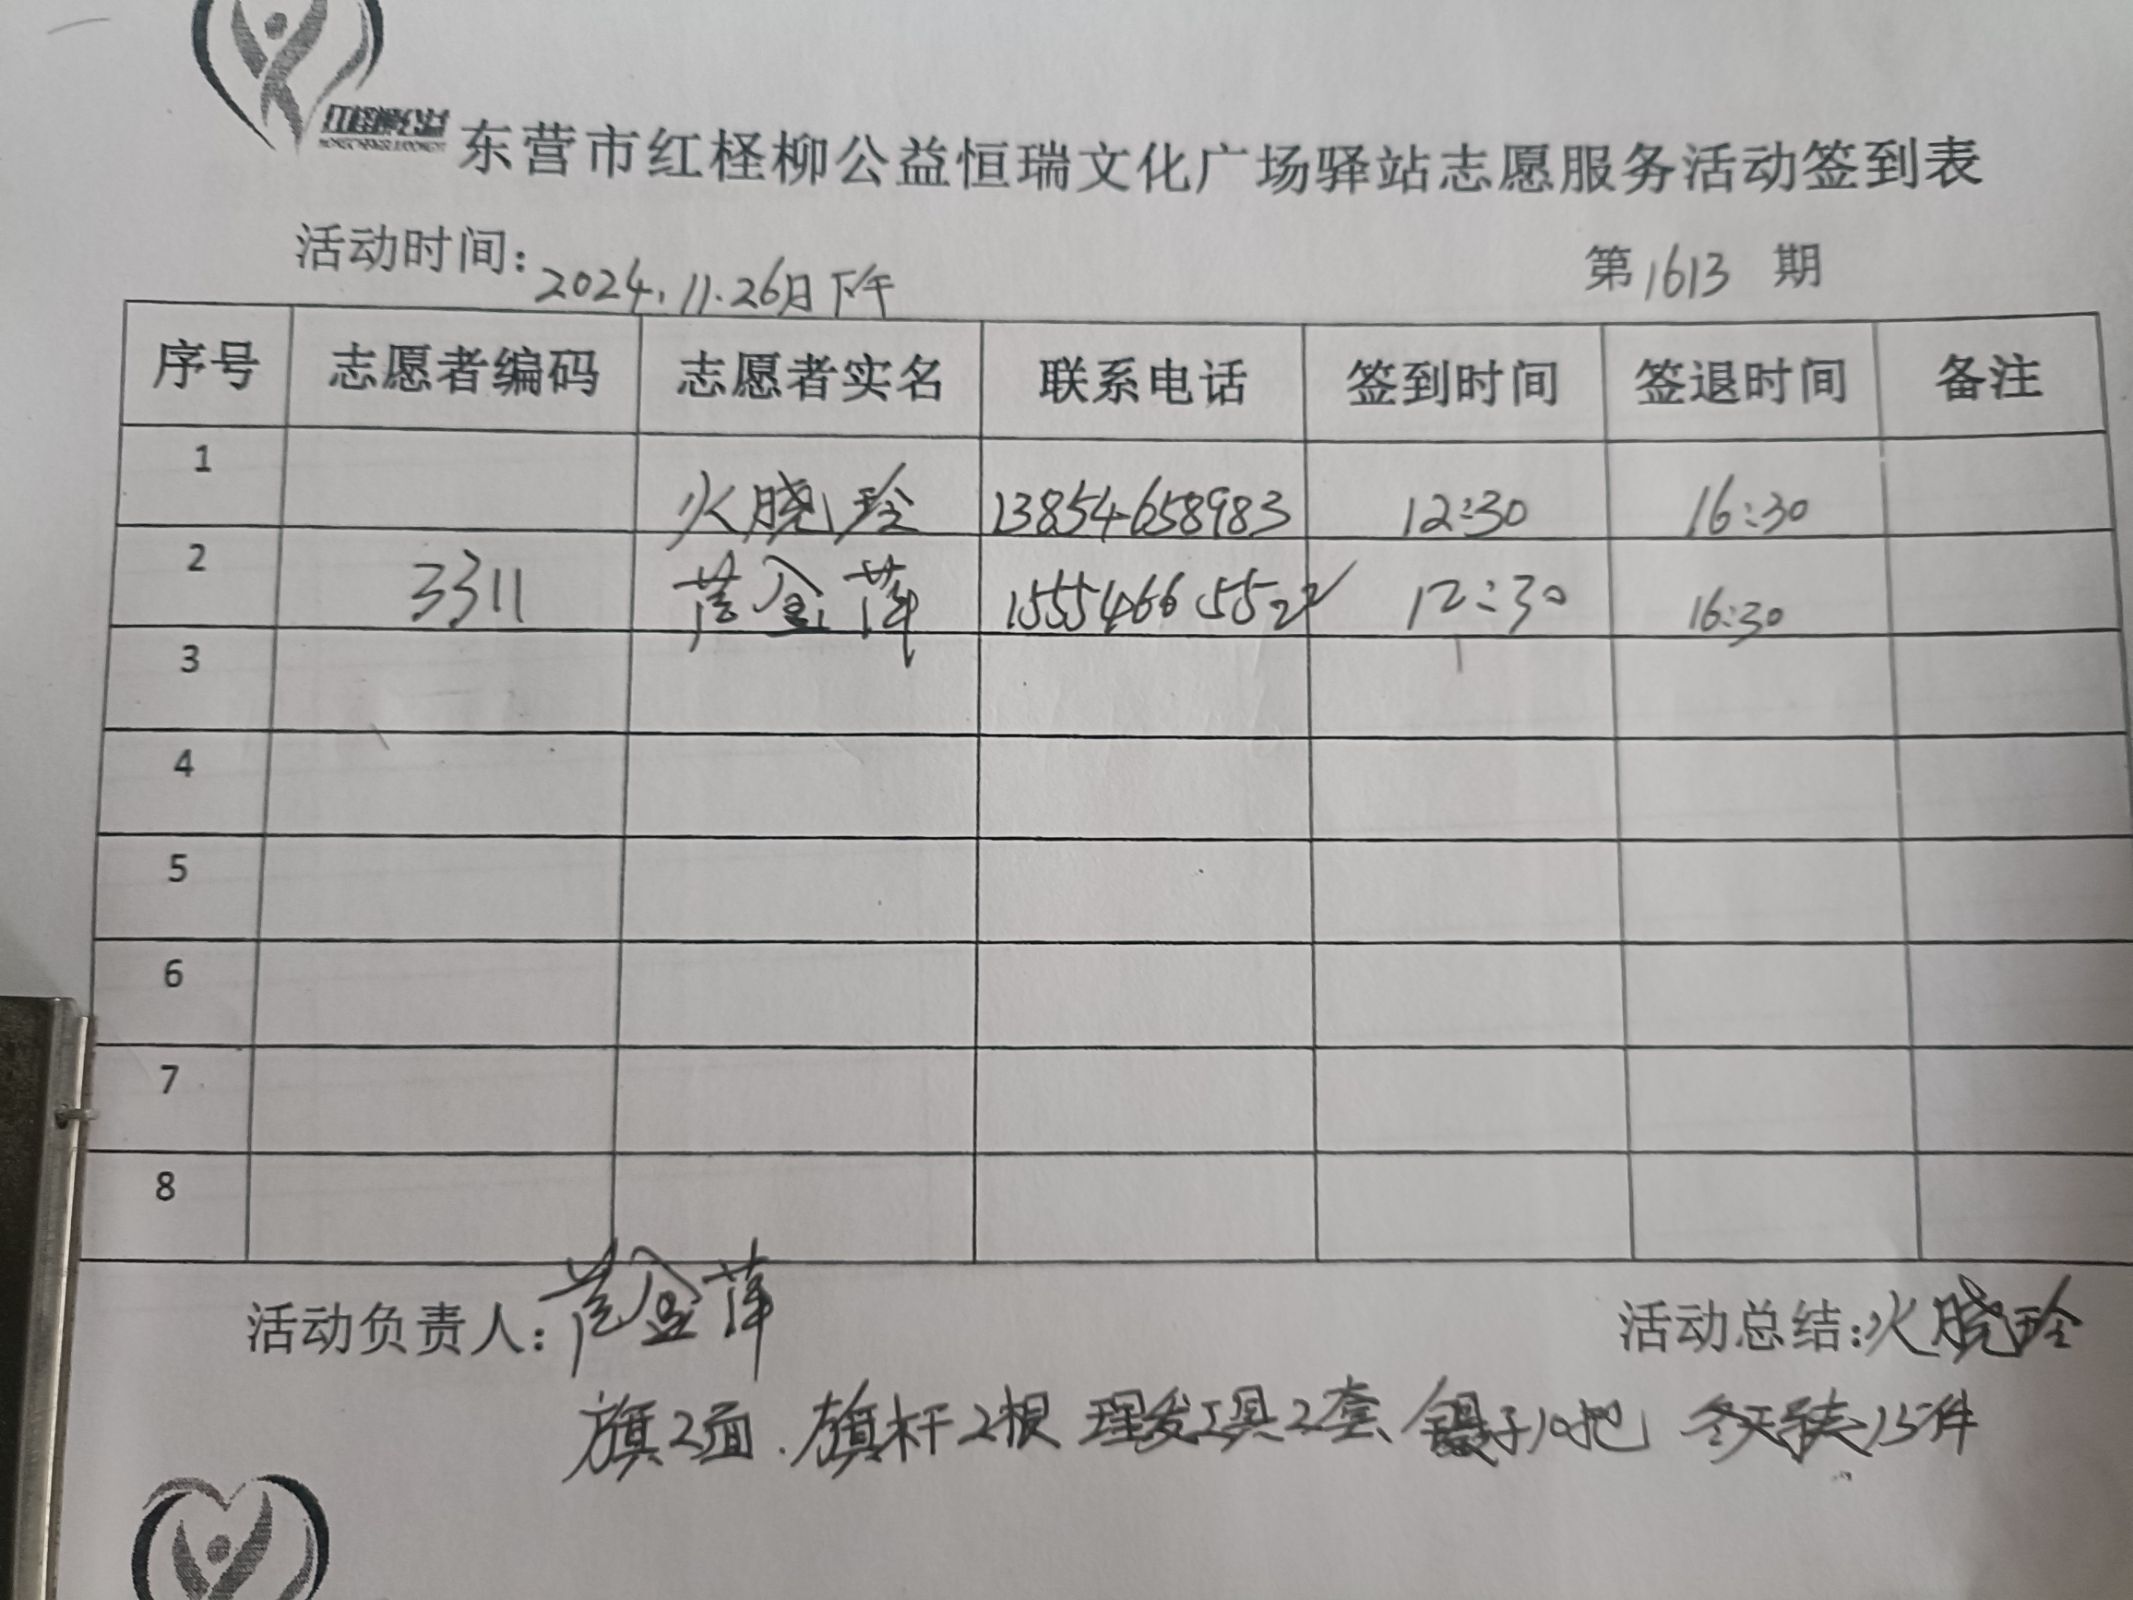 红柽柳公益
东营市红柽柳公益恒瑞文化广场驿站志愿服务活动签到表
活动时间:2024.11.26日下午 第1613期
序号 志愿者编码 志愿者实名 联系电话 签到时间 签退时间 备注
1 火晓玲 13854658983 12:30 16:30
2 3311 黄金萍 15554665522 12:30 16:30
3
4
5
6
7
8
活动负责人:黄金萍 活动总结:火晓玲
旗2面.旗杆2根 理发工具2套 镊子10把 冬天 15件